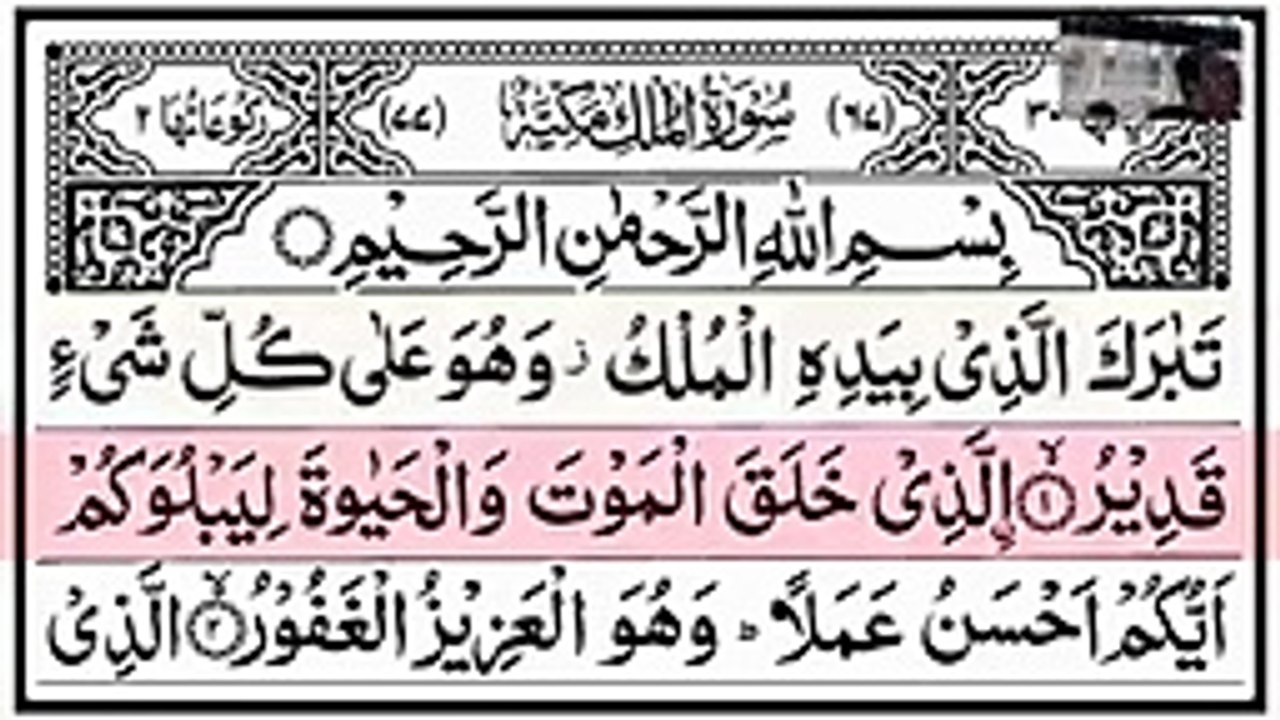 ٣٠ (٦٧) سُوْرَةُ الْمُلْكِ مَكِّيَّةٌ (٧٧) رُكُوْعَاتُهَا ٢
بِسْمِ اللّٰهِ الرَّحْمٰنِ الرَّحِيْمِ ۝
تَبٰرَكَ الَّذِىْ بِيَدِهِ الْمُلْكُ ز وَهُوَ عَلٰى كُلِّ شَىْءٍ
قَدِيْرُ ۝١ۙ اِۨلَّذِىْ خَلَقَ الْمَوْتَ وَالْحَيٰوةَ لِيَبْلُوَكُمْ
اَيُّكُمْ اَحْسَنُ عَمَلًا ؕ وَهُوَ الْعَزِيْزُ الْغَفُوْرُ ۝٢ۙ الَّذِىْ